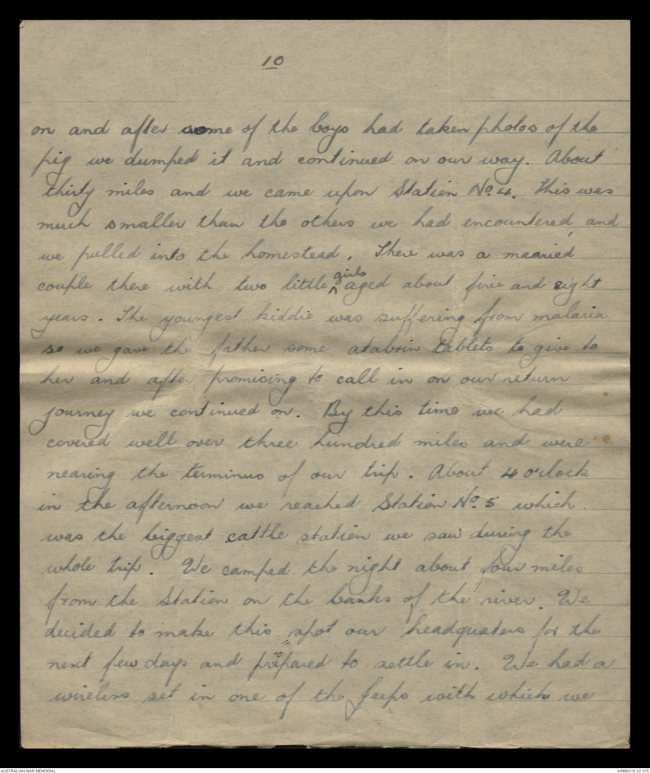 10
on and after some of the boys had taken photos of the
pig we dumped it and continued on our way. About
thirty miles and we came upon Station No. 4. This was
much smaller than the others we had encountered, and
we pulled into the homestead. There was a married
couple there with two little girls aged about five and eight
years. The youngest kiddie was suffering from malaria
so we gave the father some atabrin tablets to give to
her and after promising to call in on our return
journey we continued on. By this time we had
covered well over three hundred miles and were
nearing the terminus of our trip. About 4 o'clock
in the afternoon we reached Station No. 5 which
was the biggest cattle station we saw during the
whole trip. We camped the night about four miles
from the Station on the banks of the river. We
decided to make this spot our headquaters for the
next few days and prepared to settle in. We had a
wireless set in one of the jeeps with which we
AUSTRALIAN WAR MEMORIAL